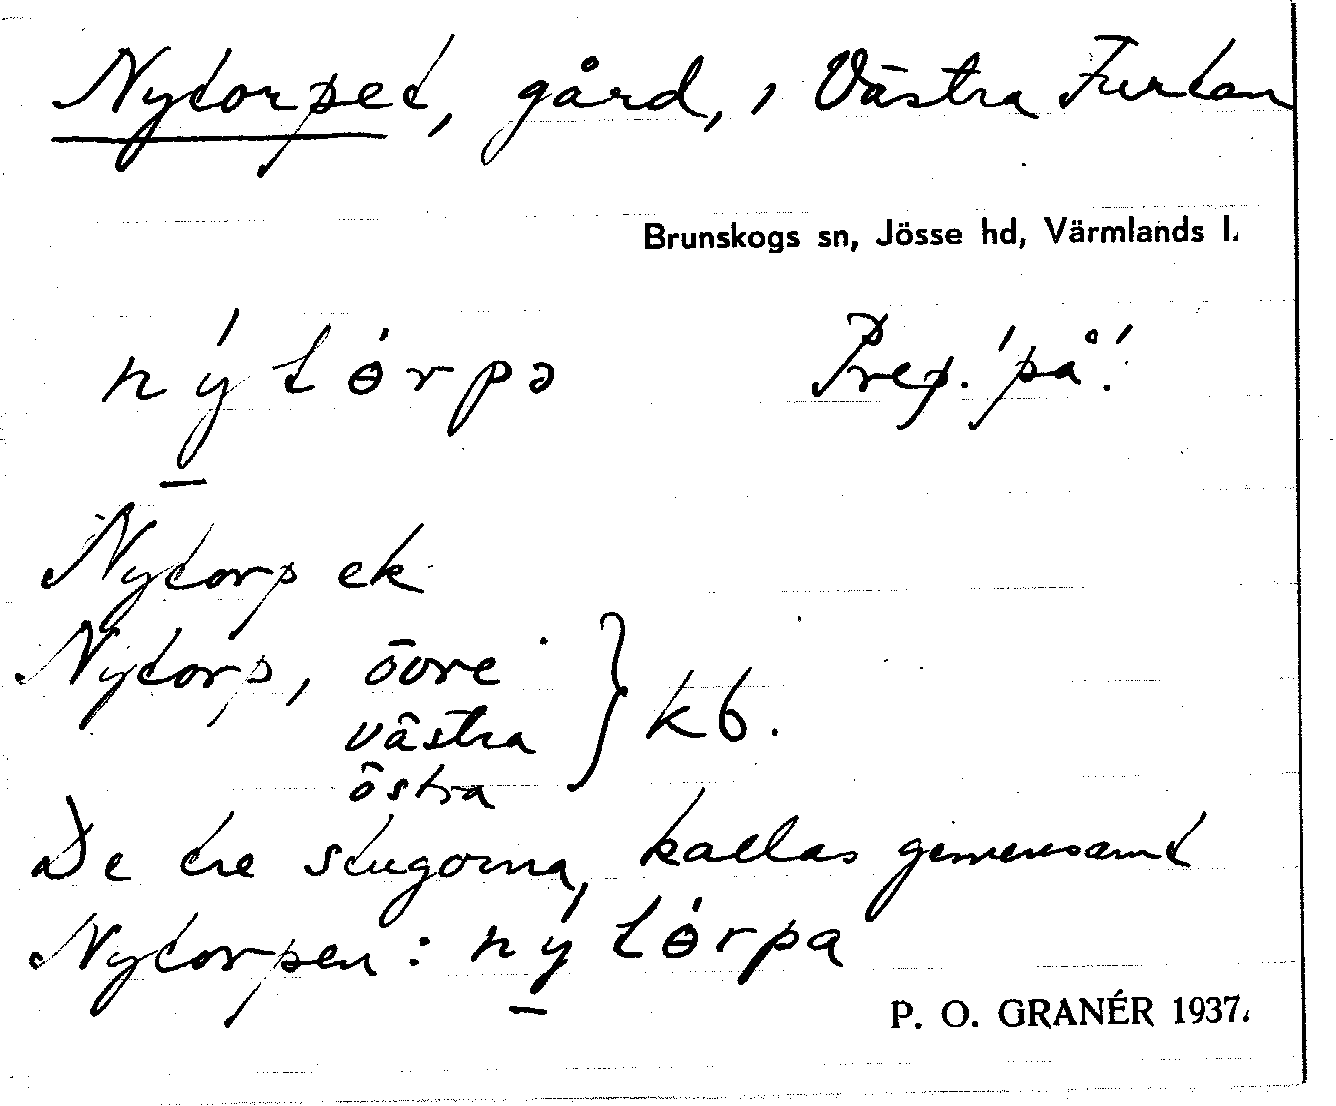 Nytorpet, gård, i Västra Furtan
Brunskogs sn, Jösse hd, Värmlands l.
ný̱tɵ́rpə Prep. 'på'.
Nytorp ek
Nytorp, övre
västra } kb.
östra
De tre stugorna, kallas gemensamt
Nytorpen: ný̱tɵ́rpa
P. O. GRANÉR 1937.